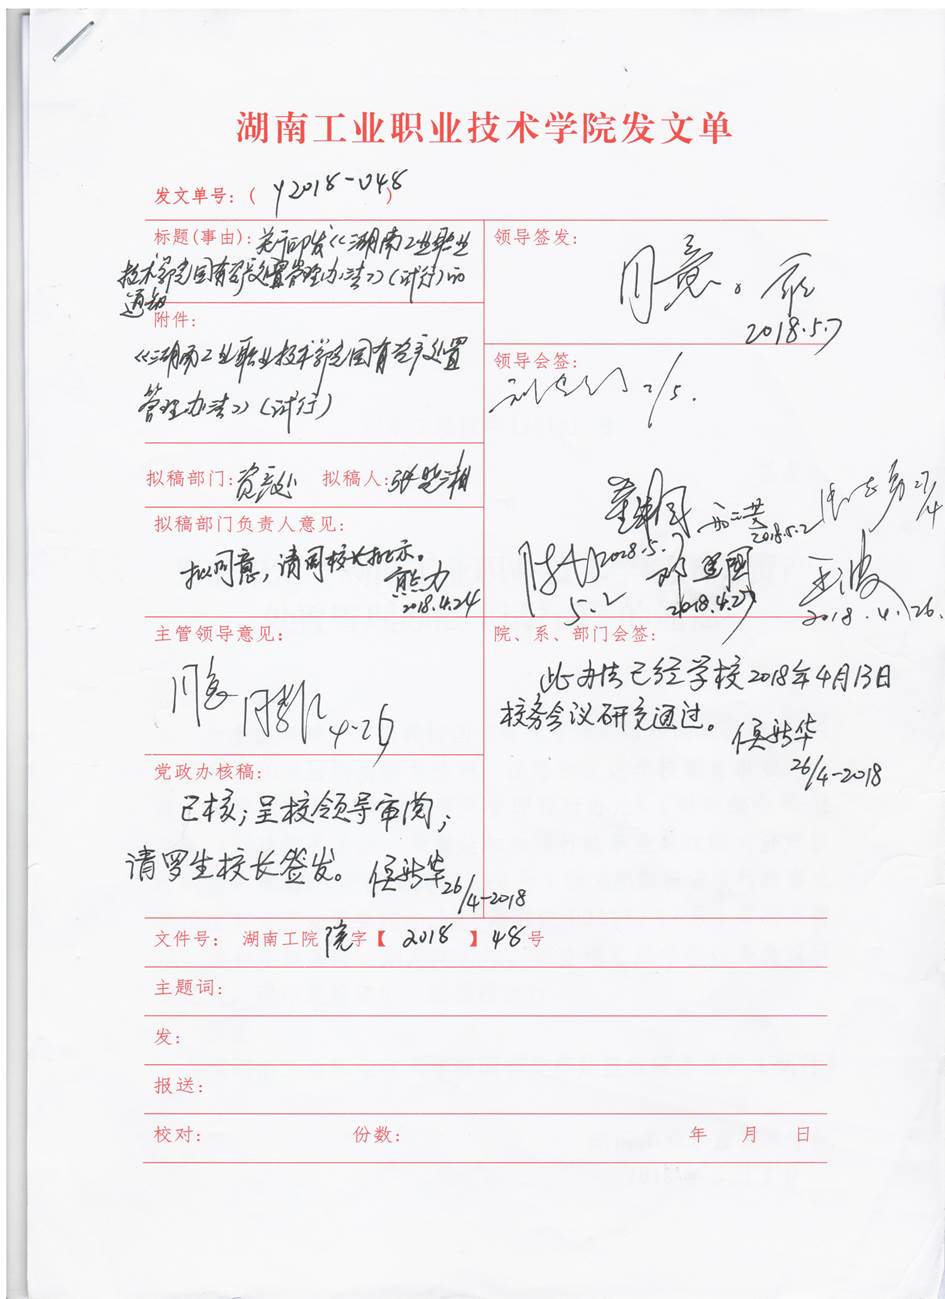 湖南工业职业技术学院发文单
发文单号：( Y2018-048 )
标题(事由)：关于印发《湖南工业职业
技术学院国有资产处置管理办法》(试行)的
通知
附件：
《湖南工业职业技术学院国有资产处置
管理办法》(试行)
拟稿部门：资产处 拟稿人：张楚湘
拟稿部门负责人意见：
拟同意，请周校长批示。
熊力
2018.4.24
主管领导意见：
同意
4-26
党政办核稿：
已核；呈校领导审阅；
请罗生校长签发。侯新华
26/4-2018
领导签发：
同意。
2018.5.7
领导会签：
2/5.
27/4
2018.5.2
2018.5.7
5.2
邓建国
2018.4.27
王波
2018.4.26.
院、系、部门会签：
此办法已经学校2018年4月13日
校务会议研究通过。
侯新华
26/4-2018
文件号： 湖南工院院字【 2018 】48号
主题词：
发：
报送：
校对： 份数： 年 月 日